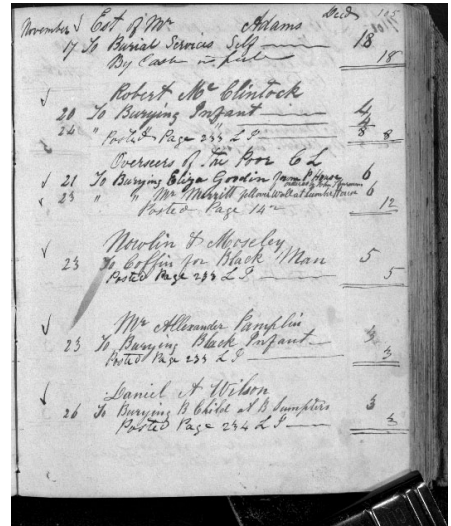 Est of Mr Adams Decd
November 17 To Burial Services Self 18
By Cash in full 18
Robert McClintock
20 To Burying Infant 4
24 " " 4
Posted Page 233 L P 8 8
Overseers of The Poor C L
21 To Burying Eliza Goodin from P House 6
23 " " Mr Merritt 6
Posted Page 142 12
Nowlin & Moseley
23 To Coffin for Black Man 5
Posted Page 233 L P 5
Mr Allexander Pamplin
23 To Burying Black Infant 3
Posted Page 233 L P 3
Daniel A Wilson
26 To Burying B Child at B Sumpters 3
Posted Page 234 L P 3